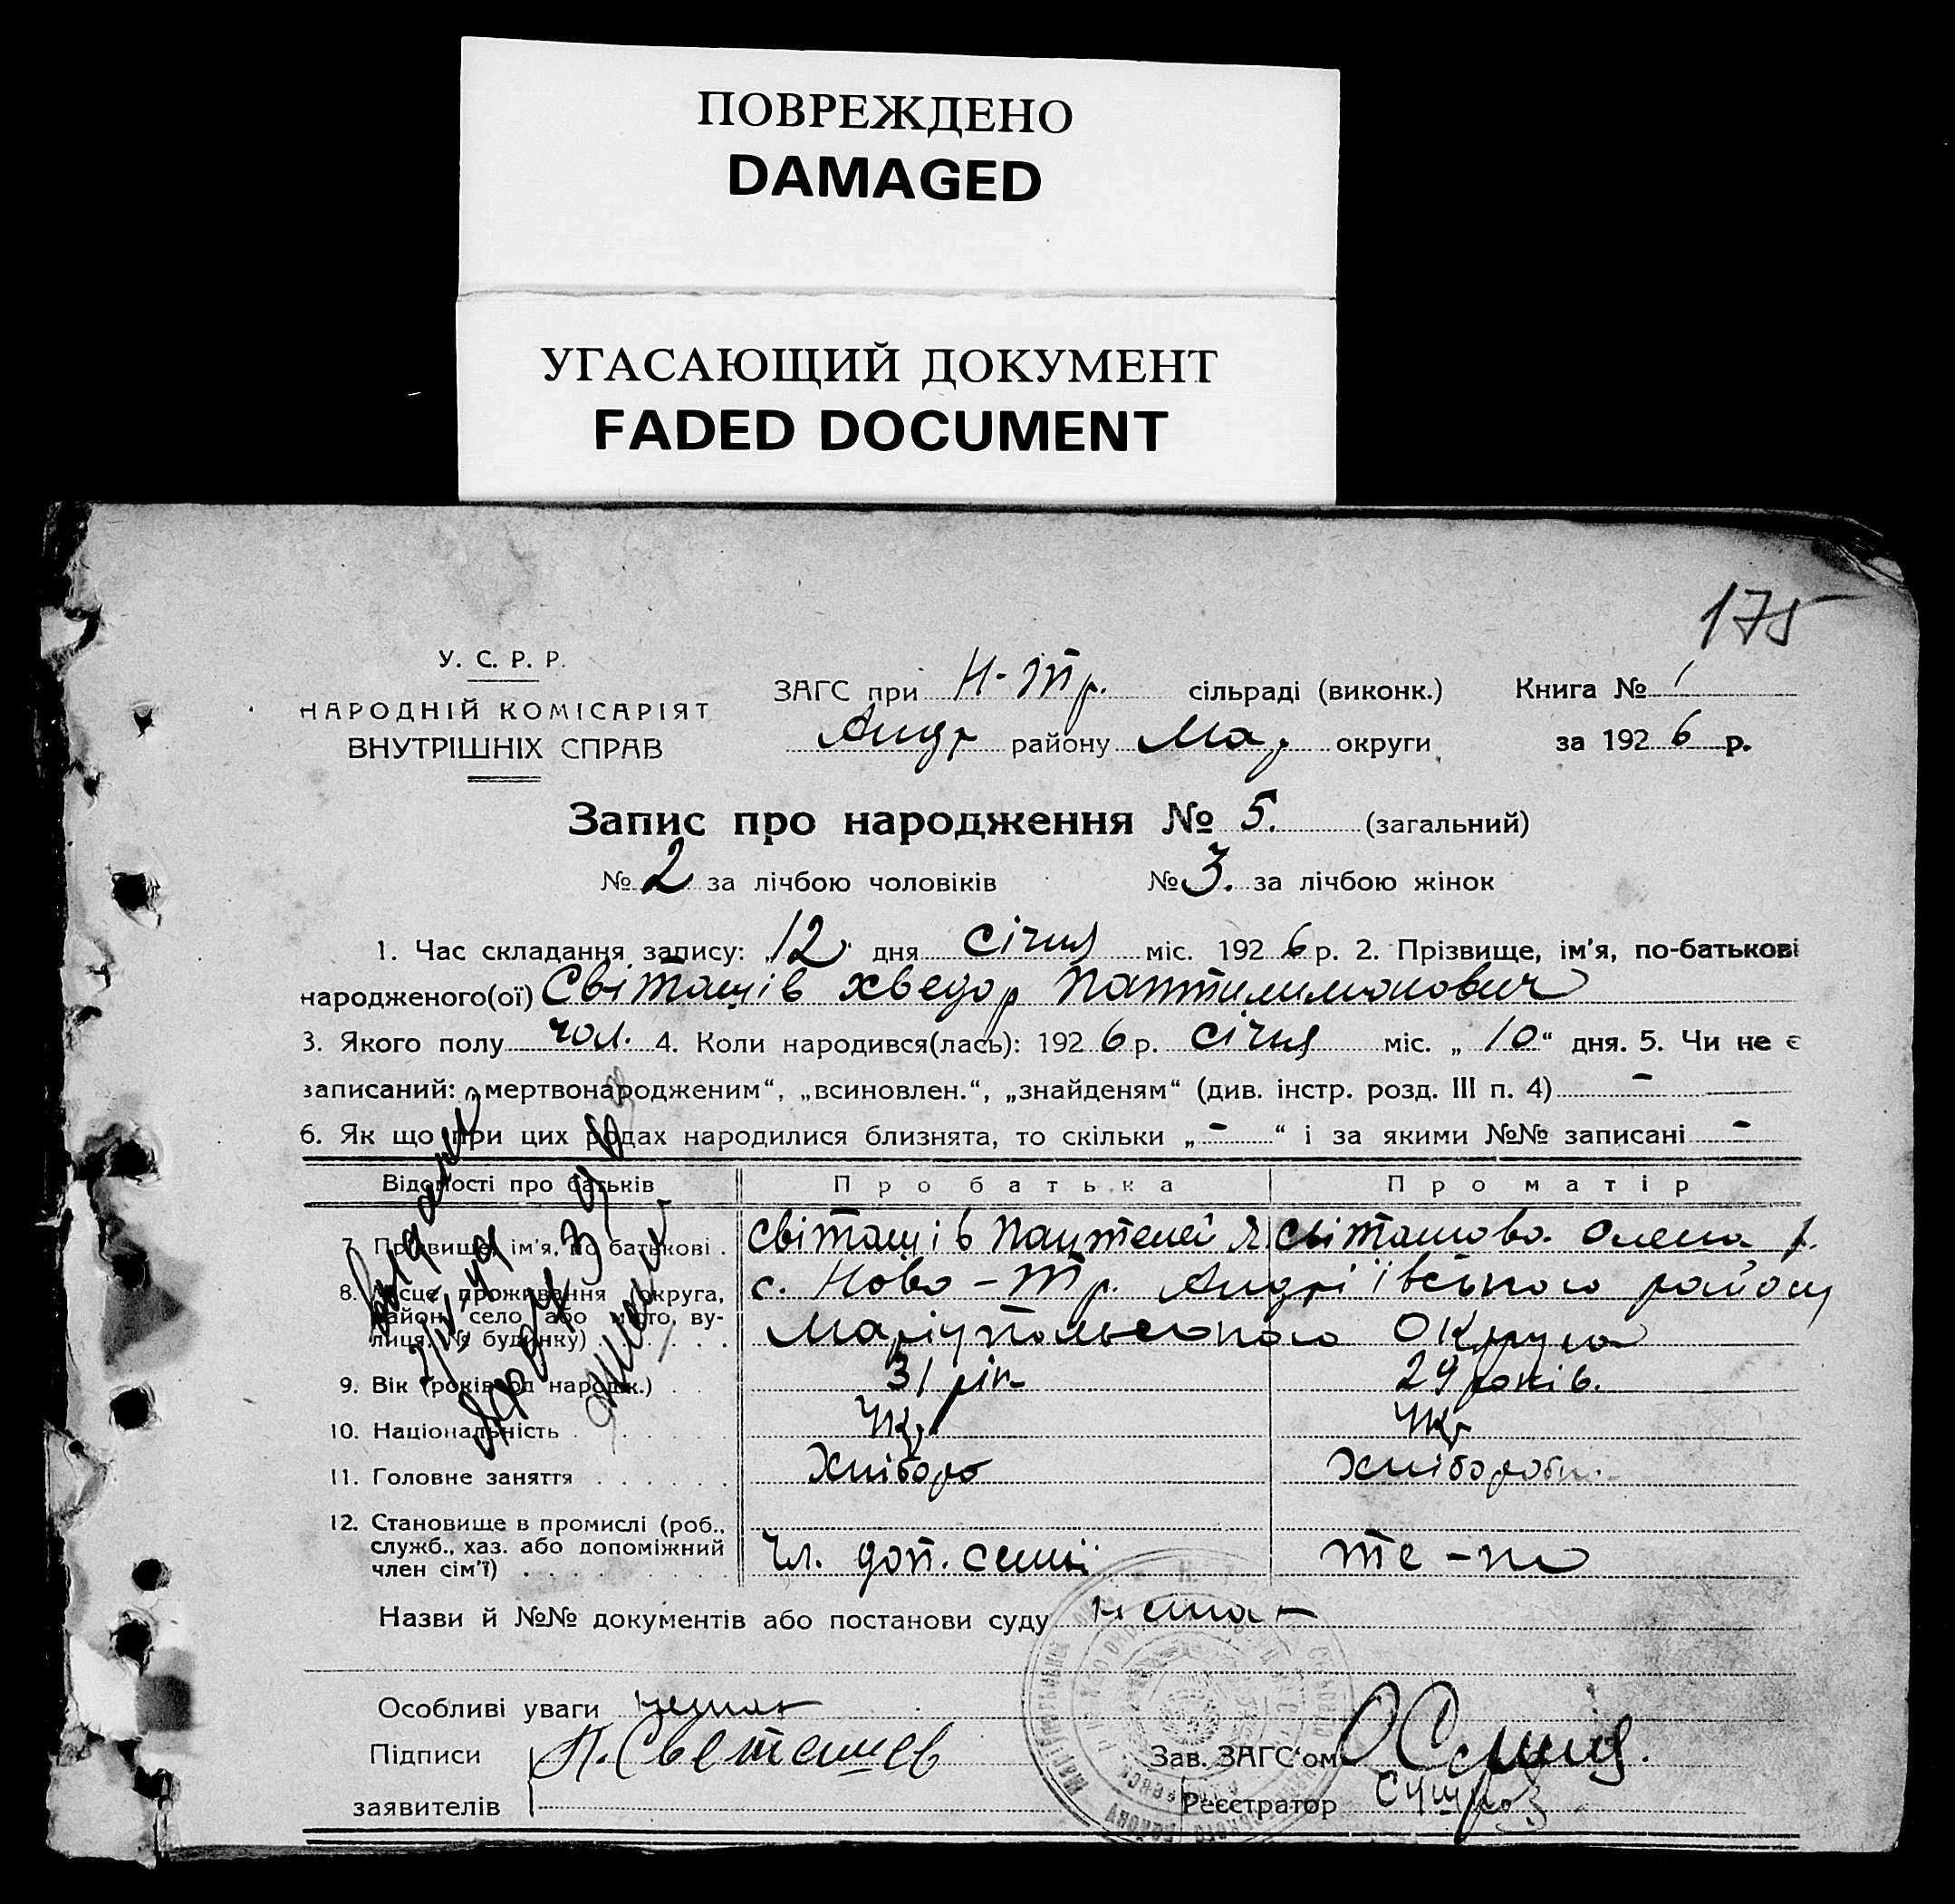 ПОВРЕЖДЕНО
DAMAGED
УГАСАЮЩИЙ ДОКУМЕНТ
FADED DOCUMENT
175
У. С. Р. Р.
НАРОДНІЙ КОМІСАРІЯТ
ВНУТРІШНІХ СПРАВ
ЗАГС при Н-Тр. сільраді (виконк.) Книга № 1
Андр району Мар округи за 1926 р.
Запис про народження № 5. (загальний)
№ 2 за лічбою чоловіків № 3. за лічбою жінок
1. Час складання запису: 12 дня січня міс. 1926 р. 2. Прізвище, ім'я, по-батькові
народженого(ої) Світашів Хведор
3. Якого полу чол. 4. Коли народився(лась): 1926 р. січня міс. „10“ дня. 5. Чи не є
записаний: „мертвонародженим“, „всиновлен.“, „знайденям“ (див. інстр. розд. III п. 4) -
6. Як що при цих родах народилися близнята, то скільки „-“ і за якими №№ записані -
Відомості про батьків Про батька Про матір
7. Прізвище, ім'я, по батькові . Світашів Пантелей Я. Світашова Олена
8. Місце проживання (округа, район, село або місто, вулиця, № будинку) с. Ново-Тр. Андріївського району
Маріупольського Округа
9. Вік (років од народж.) . . 31 рік 29 років.
10. Національність . . . . . Укр Укр
11. Головне заняття . . . . . Хлібороб
12. Становище в промислі (роб.,
служб., хаз. або допоміжний
член сім'ї) . . . . . . . Чл. доп. семьї те-ж
Назви й №№ документів або постанови суду немає
Особливі уваги немає
Підписи П. Светашев Зав. ЗАГС'ом
заявителів Реєстратор